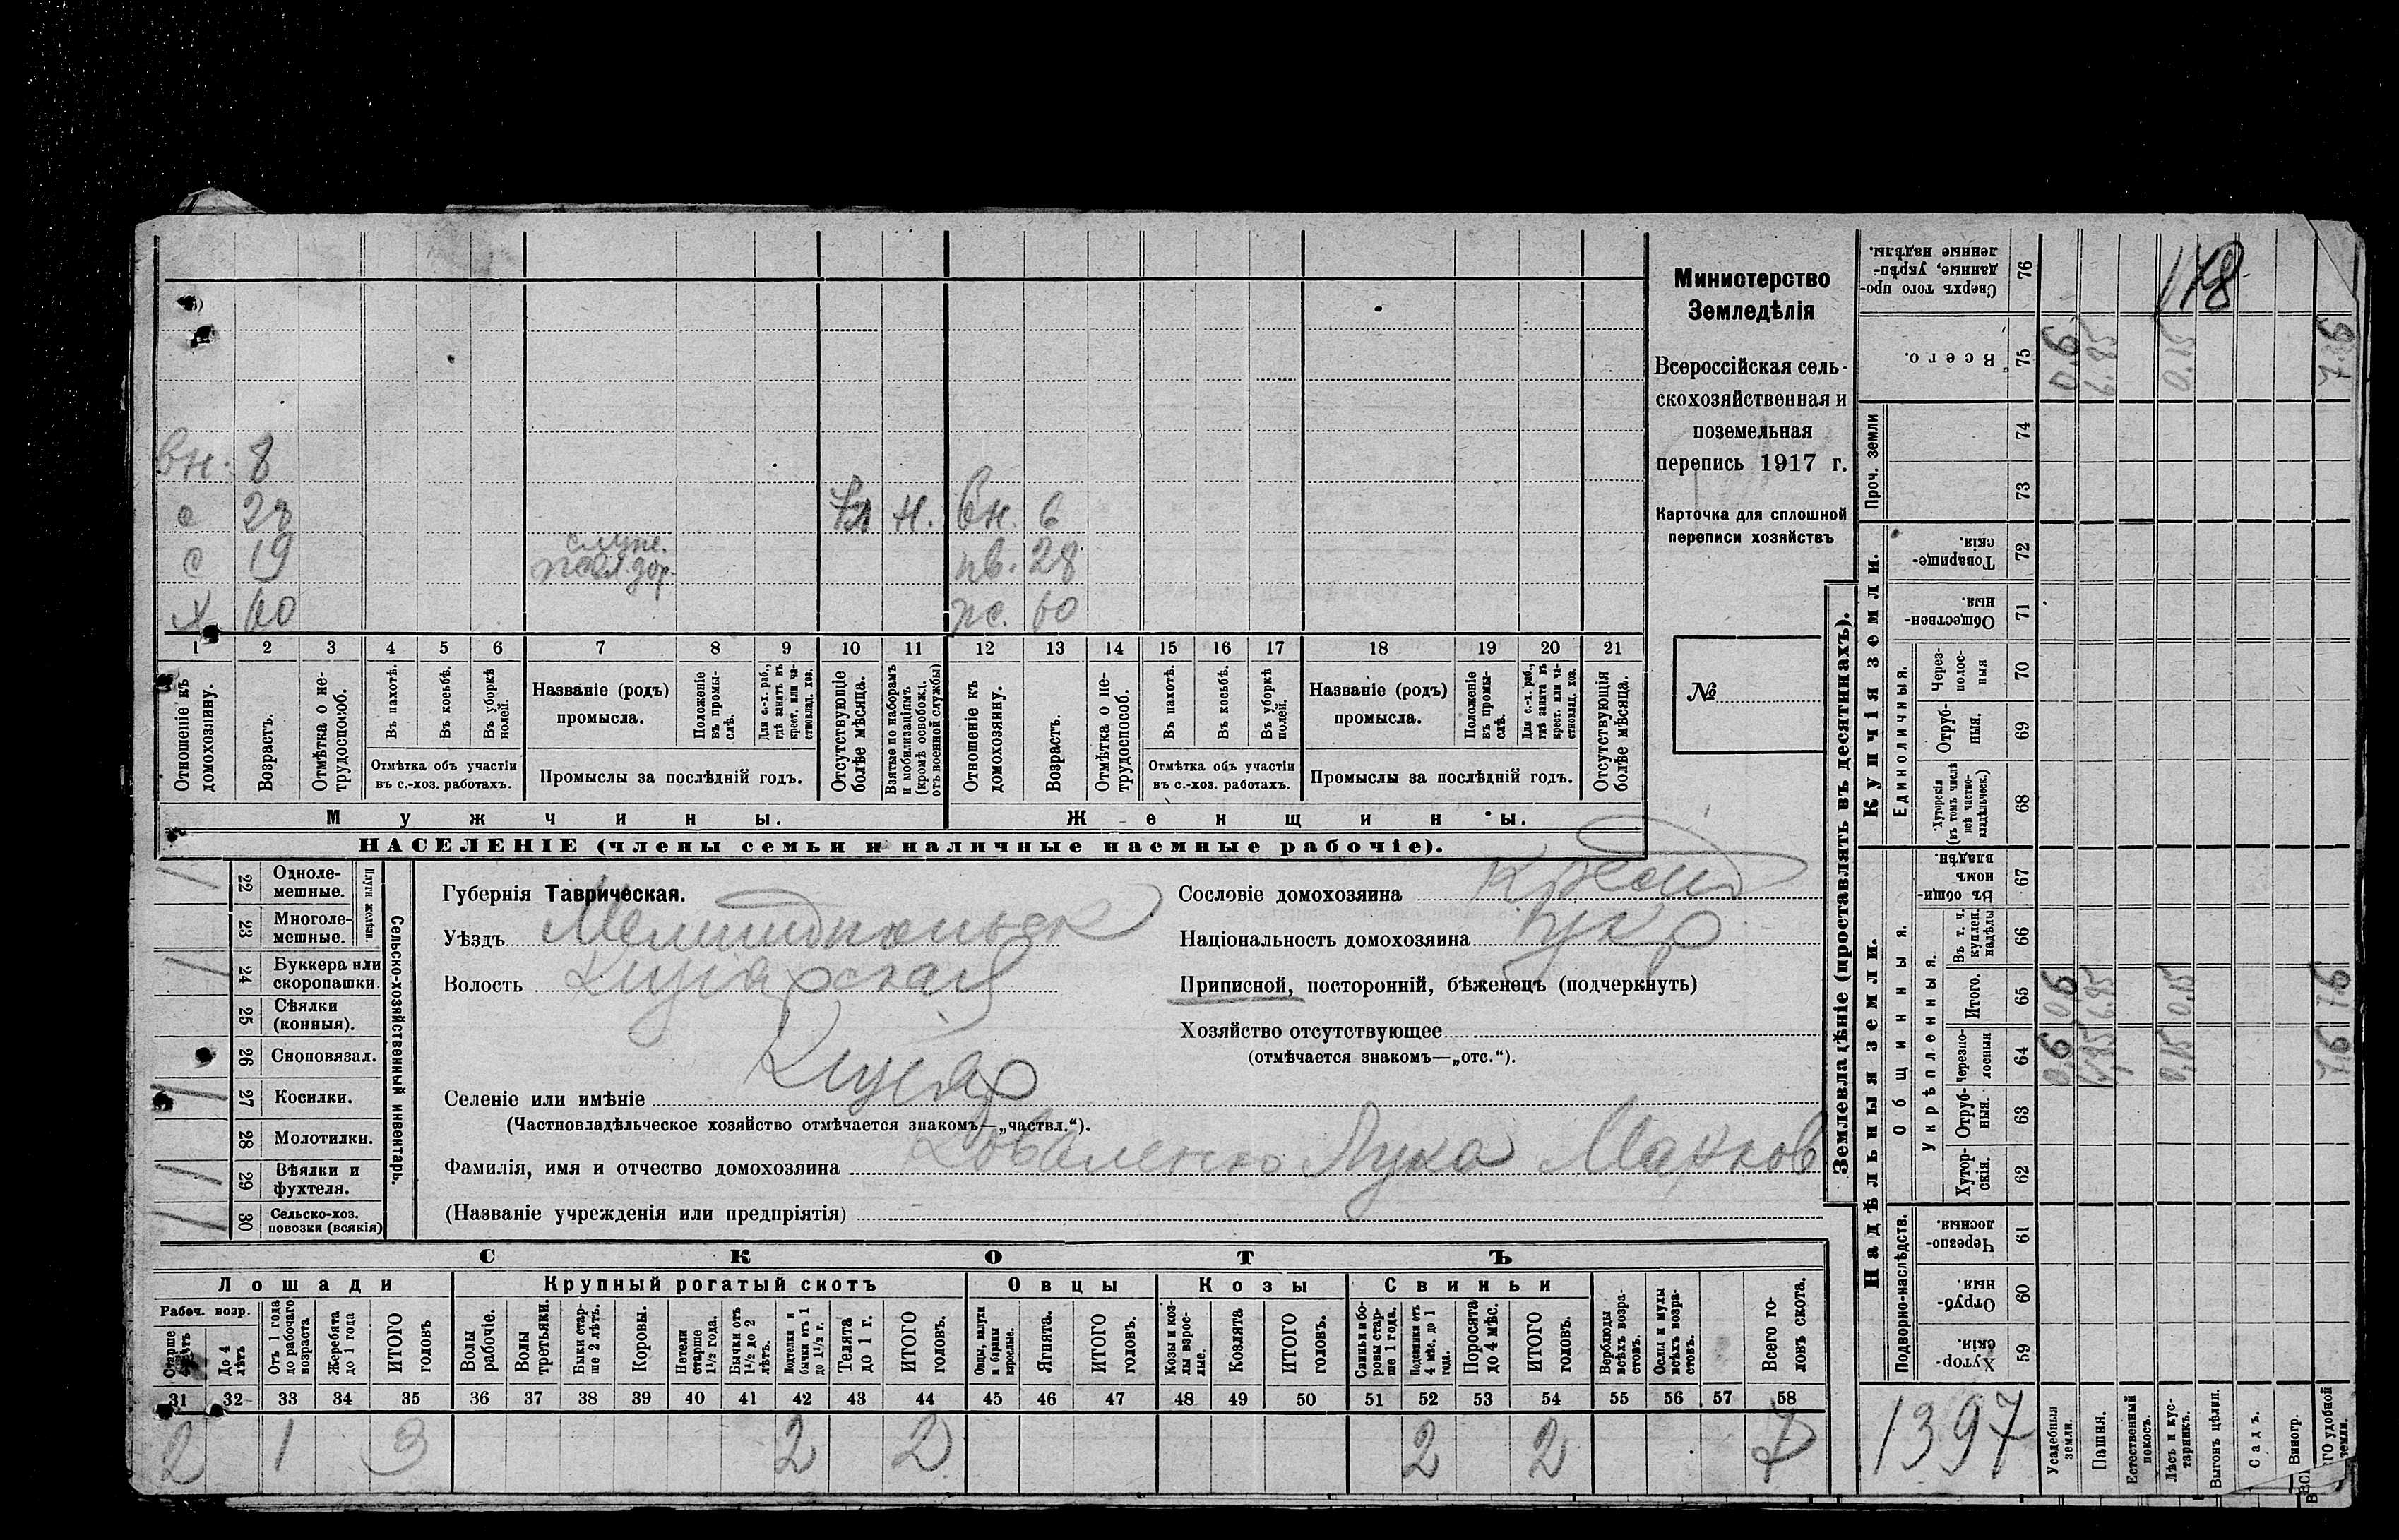 Министерство
Земледѣлія
Всероссійская сель-
скохозяйственная и
поземельная
перепись 1917 г.
Карточка для сплошной
переписи хозяйствъ
№
вн. 8
с 28 н. вн. 6
с 19 служ. жел. дор. нв. 28
х 60 ж. 60
1 2 3 4 5 6 7 8 9 10 11 12 13 14 15 16 17 18 19 20 21
Отношеніе къ домохозяину.
Возрастъ.
Отмѣтка о не-трудоспособ.
Въ пахотѣ.
Въ косьбѣ.
Въ уборкѣ полей.
Отмѣтка объ участіи
въ с.-хоз. работахъ.
Названіе (родъ)
промысла.
Положеніе въ промы-слѣ.
Для с.-х. раб., гдѣ занятъ въ крест. или ча-стновлад. хоз.
Промыслы за послѣдній годъ.
Отсутствующіе болѣе мѣсяца.
Взятые по наборамъ и мобилизаціямъ (кромѣ освобожд. отъ военной службы)
Отношеніе къ домохозяину.
Возрастъ.
Отмѣтка о не-трудоспособ.
Въ пахотѣ.
Въ косьбѣ.
Въ уборкѣ полей.
Отмѣтка объ участіи
въ с.-хоз. работахъ.
Названіе (родъ)
промысла.
Положеніе въ промы-слѣ.
Для с.-х. раб., гдѣ занята въ крест. или ча-стновлад. хоз.
Промыслы за послѣдній годъ.
Отсутствующія болѣе мѣсяца.
Мужчины. Женщины.
НАСЕЛЕНІЕ (члены семьи и наличные наемные рабочіе).
Сельско-хозяйственный инвентарь.
Плуги желѣзн.
22 Одноле-мешные.
23 Многоле-мешные.
24 Буккера или скоропашки.
25 Сѣялки (конныя).
26 Сноповязал.
27 Косилки.
28 Молотилки.
29 Вѣялки и фухтеля.
30 Сельско-хоз. повозки (всякія)
Губернія Таврическая.
Уѣздъ Мелитопольск
Волость Кизіарская
Селеніе или имѣніе Кизіар
(Частновладѣльческое хозяйство отмѣчается знакомъ—„частвл.“).
Фамилія, имя и отчество домохозяина Коваленко Лука Марков
(Названіе учрежденія или предпріятія)
Сословіе домохозяина Крест
Національность домохозяина укр
Приписной, посторонній, бѣженецъ (подчеркнуть)
Хозяйство отсутствующее
(отмѣчается знакомъ—„отс.“).
СКОТЪ
Лошади Крупный рогатый скотъ Овцы Козы Свиньи
Рабоч. возр.
Старше 4 лѣтъ
До 4 лѣтъ
Отъ 1 года до рабочаго возраста
Жеребята до 1 года
ИТОГО головъ
Волы рабочіе.
Волы третьяки.
Быки стар-ше 2 лѣтъ.
Коровы.
Нетели старше 1½ года.
Бычки отъ 1½ до 2 лѣтъ.
Подтелки и бычки отъ 1 до 1½ г.
Телята до 1 г.
ИТОГО головъ.
Овцы, валухи и бараны взрослые.
Ягнята.
ИТОГО головъ.
Козы и коз-лы взрос-лые.
Козлята
ИТОГО головъ.
Свиньи и бо-ровы стар-ше 1 года.
Подсвинки отъ 4 мѣс. до 1 года.
Поросята до 4 мѣс.
ИТОГО головъ.
Верблюды всѣхъ возра-стовъ.
Ослы и мулы всѣхъ возра-стовъ.
Всего го-ловъ скота.
31 32 33 34 35 36 37 38 39 40 41 42 43 44 45 46 47 48 49 50 51 52 53 54 55 56 57 58
2 1 3 2 2 2 2 7
Землевладѣніе (проставлять въ десятинахъ).
Купчія земли.
Надѣльныя земли.
Проч. земли
Единоличныя.
Общинныя.
Укрѣпленныя.
Подворно-наслѣдств.
Сверхъ того про-данные, укрѣп-ленные надѣлы. 76
178
Всего. 75 0.6 6.85 0.15 7.6
74
73
Товарище-скія. 72
Обществен-ныя. 71
Через-полос-ныя 70
Отруб-ныя. 69
Хуторскія (въ томъ числѣ всѣ частно-владѣльческ.) 68
Въ общи-номъ владѣн. 67
Въ т. ч. куплен. надѣлы 66
Итого. 65 0.6 6.85 0.15 7.6
Черезпо-лосныя 64 0,6 6,85 0,15 7.6
Отруб-ныя. 63
Хутор-скія. 62
Черезпо-лосныя. 61
Отруб-ныя. 60
Хутор-скія 59
1397
Усадебныя земли.
Пашня.
Естественный покосъ.
Лѣсъ и кус-тарникъ.
Выгонъ цѣлин.
Садъ.
Виногр.
удобной земли.